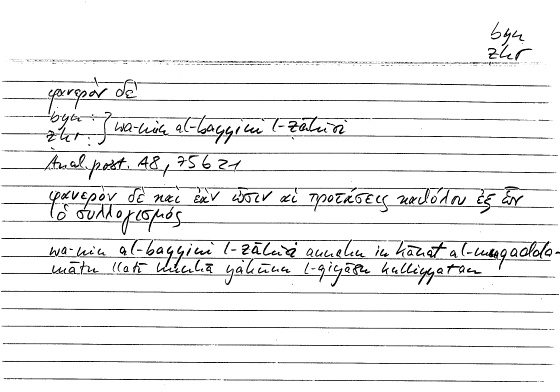 byn
zhr
φανερὸν δὲ
byn :
zhr : } wa-min al-bayyini l-ẓāhiri
Anal. post. A8, 75b21
φανερὸν δὲ καὶ ἐὰν ὦσιν αἱ προτάσεις καθόλου ἐξ ὧν
ὁ συλλογισμός
wa-min al-bayyini l-ẓāhiri annahu in kānat al-muqadda-
mātu llatī minhā yakūnu l-qiyāsu kulliyyatan